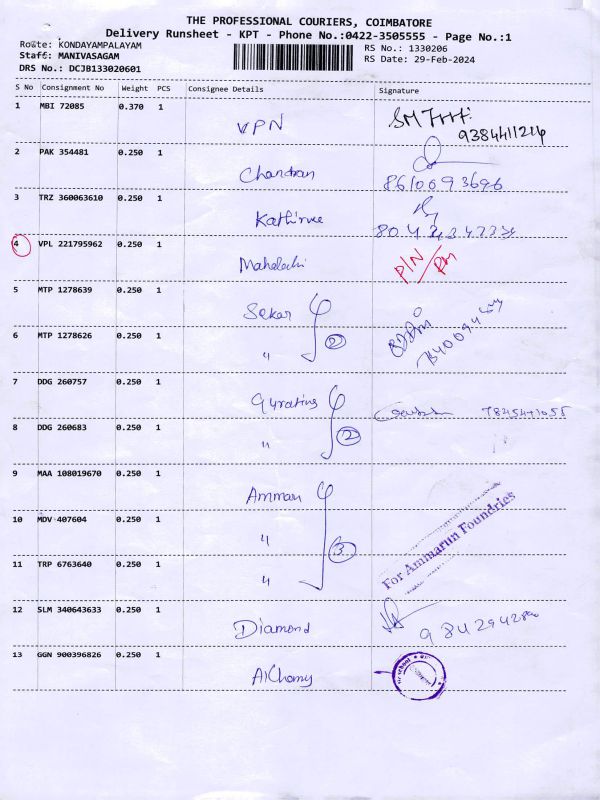 THE PROFESSIONAL COURIERS, COIMBATORE
Delivery Runsheet - KPT - Phone No.:0422-3505555 - Page No.:1
Route: KONDAYAMPALAYAM RS No.: 1330206
Staff: MANIVASAGAM RS Date: 29-Feb-2024
DRS No.: DCJB133020601
S No Consignment No Weight PCS Consignee Details Signature
1 MBI 72085 0.370 1 VPN
9384411214
2 PAK 354481 0.250 1 Chandran
8610093696
3 TRZ 360063610 0.250 1
4 VPL 221795962 0.250 1 P/N/
5 MTP 1278639 0.250 1 Sekar
6 MTP 1278626 0.250 1 " 2
7 DDG 260757 0.250 1
8 DDG 260683 0.250 1 " 2
9 MAA 108019670 0.250 1 Amman
10 MDV 407604 0.250 1 " 3
11 TRP 6763640 0.250 1 "
For Ammarun Foundries
12 SLM 340643633 0.250 1 Diamond
13 GGN 900396826 0.250 1